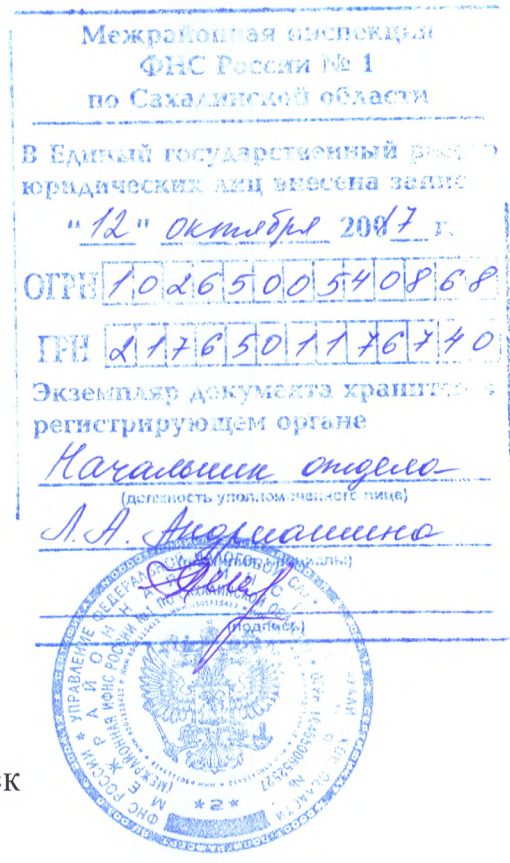 Межрайонная инспекция
ФНС России № 1
по Сахалинской области
В Единый государственный реестр
юридических лиц внесена запись
"12" октября 2017 г.
ОГРН 1026500540868
ГРН 2176501176740
Экземпляр документа хранится в
регистрирующем органе
Начальник отдела
(должность уполномоченного лица)
Л.А. Андриашина
(подпись)
ФНС РОССИИ * УПРАВЛЕНИЕ ФЕДЕРАЛЬНОЙ
МЕЖРАЙОННАЯ
(МЕЖРАЙОННАЯ ИФНС РОССИИ №1 ПО САХАЛИНСКОЙ
*2*
ск